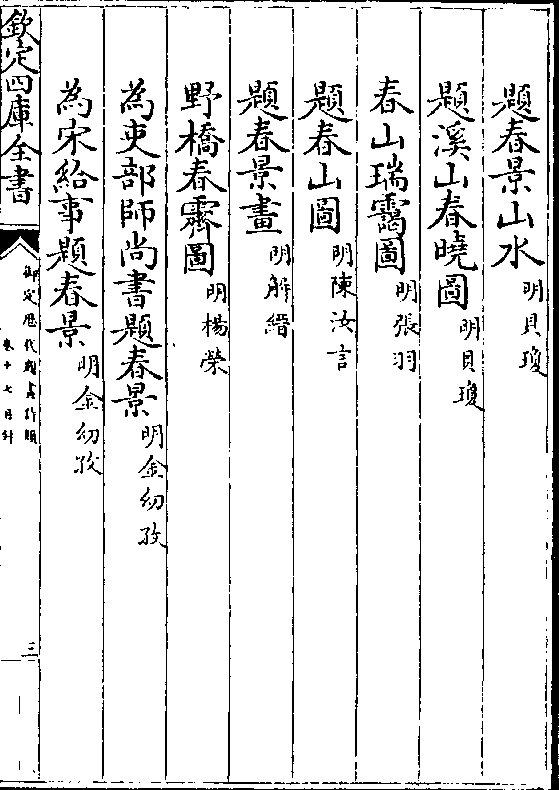 題春景山水 明貝瓊
題溪山春曉圖 明貝瓊
春山瑞靄圖 明張羽
題春山圖 明陳汝言
題春景畫 明解縉
野橋春霽圖 明楊榮
為吏部師尚書題春景 明金幼孜
為宋給事題春景 明金幼孜
欽定四庫全書
御定歷代題畫詩類
卷十七目錄
三